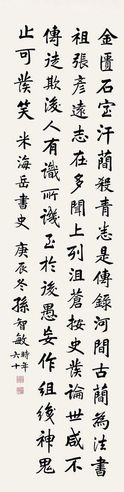 金匱石室汗簡殺青悉是傳錄河間古簡為法書
祖張彥遠志在多聞上列沮蒼按史發論世咸不
傳徒欺後人有識所譏至於後愚妄作組織神鬼
止可發笑 米海岳書史 庚辰冬 孫智敏時年六十